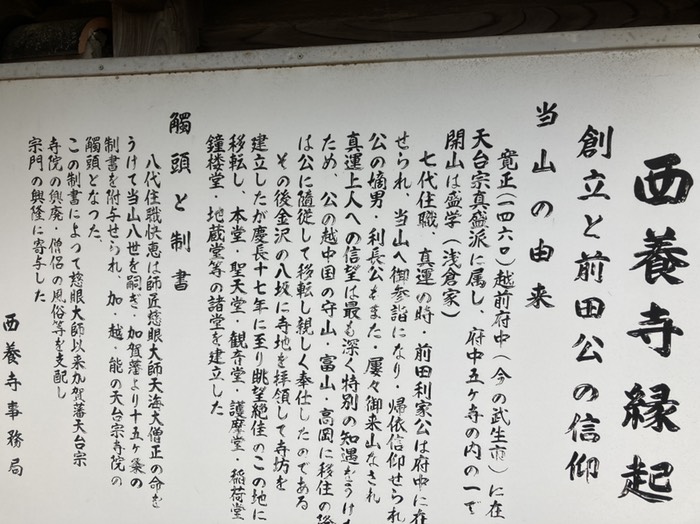 西養寺縁起
創立と前田公の信仰
当山の由来
寛正(一四六〇)越前府中(今の武生市)に在
天台宗真盛派に属し、府中五ヶ寺の内の一で
開山は盛学(浅倉家)
七代住職 真運の時、前田利家公は府中に在
せられ、当山へ御参詣になり・帰依信仰せられ
公の嫡男・利長公もまた・屢々御来山なされ
真運上人への信望は最も深く特別の知遇をうけ
ため、公の越中国の守山、富山・高岡に移住の
は公に随従して移転し親しく奉仕したのである
その後金沢の八坂に寺地を拝領して寺坊を
建立したが慶長十七年に至り眺望絶佳のこの地に
移転し、本堂・聖天堂・観音堂・護摩堂・稲荷堂
鐘楼堂・地蔵堂等の諸堂を建立した
觸頭と制書
八代住職快恵は師匠慈眼大師天海大僧正の命を
うけて当山八世を嗣ぎ・加賀藩より十五ヶ条の
制書を附与せられ、加・越・能の天台宗寺院の
觸頭となつた、
この制書によつて慈眼大師以来加賀藩天台宗
寺院の興廃・僧侶の風俗等を支配し
宗門の興隆に寄与した
西養寺事務局